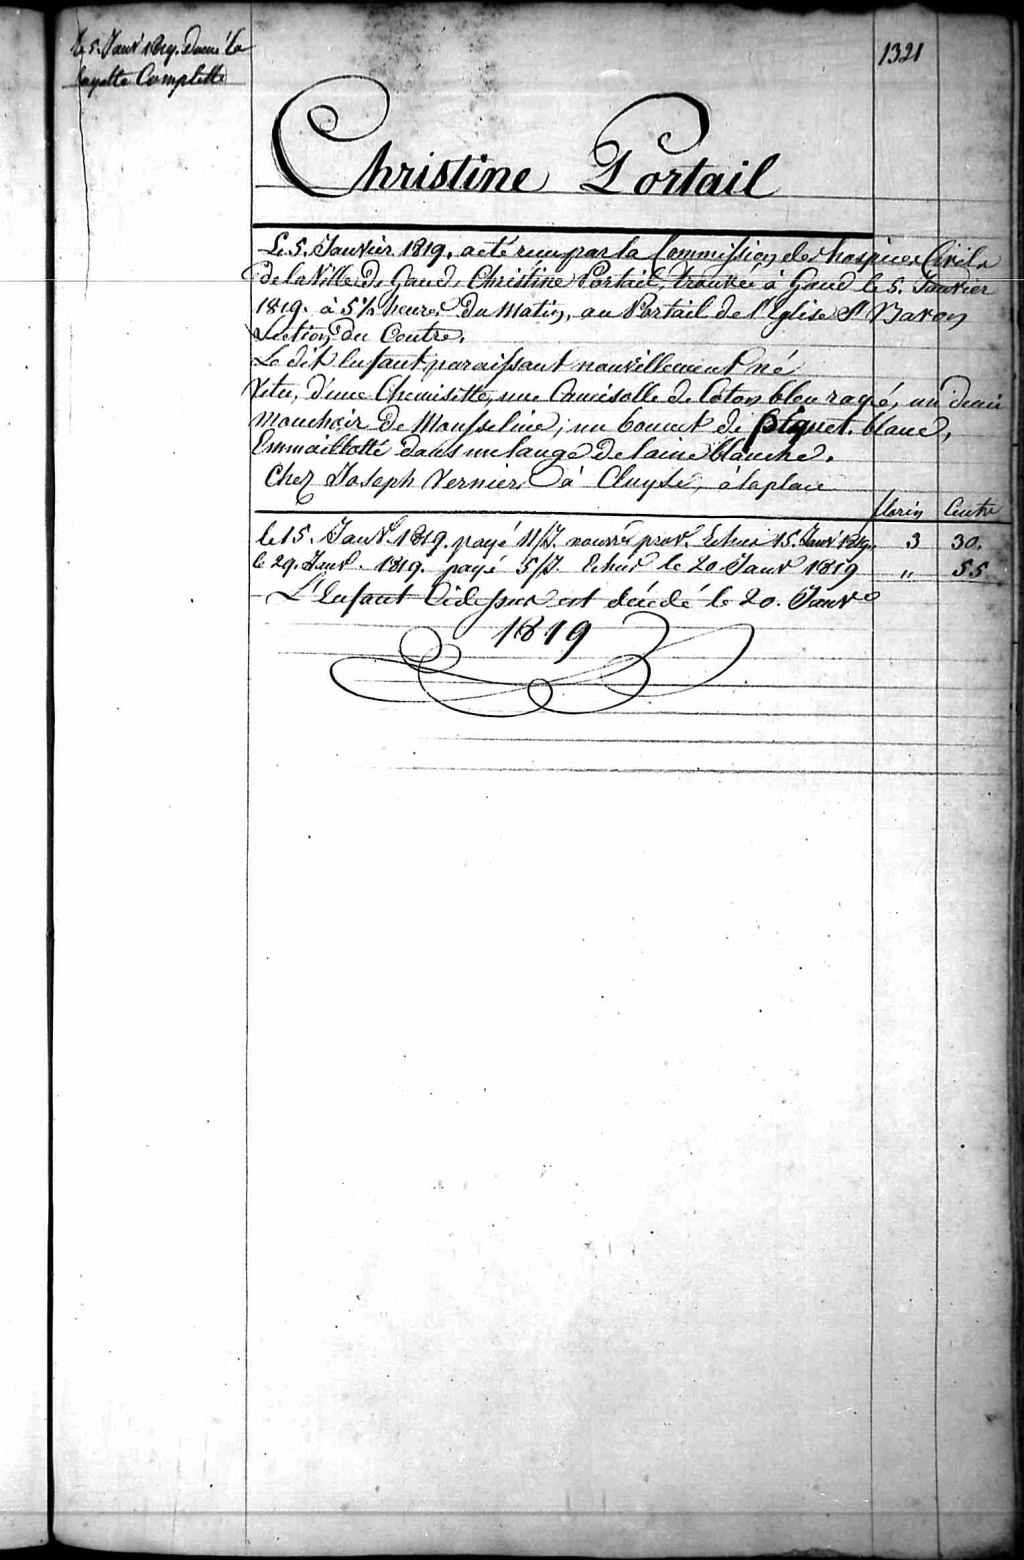 le 5. Janv 1819. donné la
layette Complette
1321
Christine Portail
Le 5. Janvier 1819. a été reçu par la Commission des hospices Civils
de la Ville de Gand, Christine Portail, trouvée à Gand le 5. Janvier
1819. à 5½ heures du Matin, au Portail de l'Eglise St Bavon
Section du Centre.
Le dit Enfant paraissant nouvellement né
Vetu, d'une Chemisette, une Camisolle de Coton bleu rayé, un demi
mouchoir de Mousseline, un bonnet de piquet blanc,
Emmaillotté dans un lange de laine blanche.
Chez Joseph Vernier à Cluyse, à la place
florin Cents
le 15. Janv. 1819. payé 11/J. nourre prov. Echus 15. Janv 1819. 3 30.
le 29. Janv. 1819. payé 5/J Echus le 20 Janv 1819 " 55
L'Enfant Cidessus est décédé le 20. Janv
1819